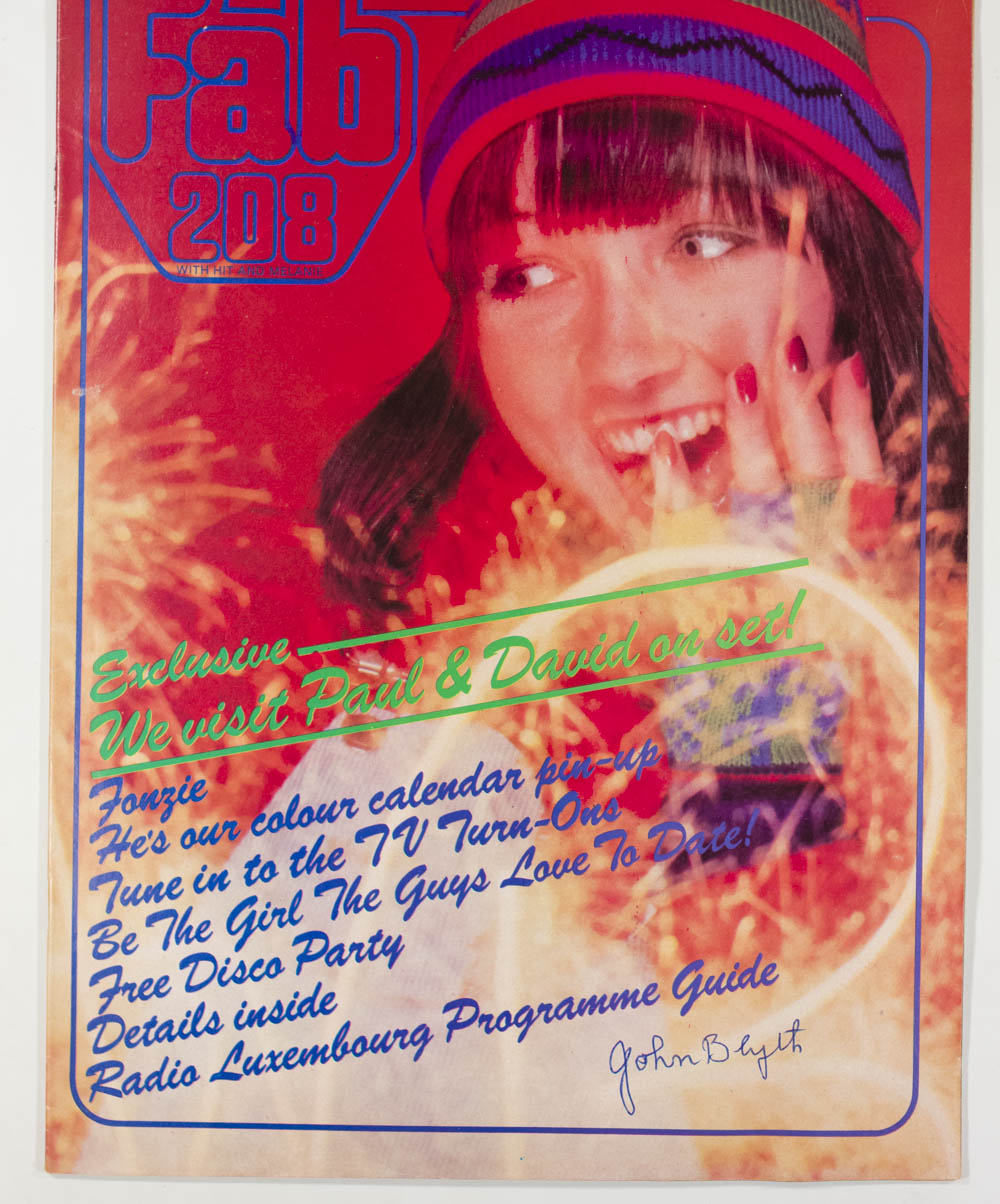 Fab
208
WITH HIT AND MELANIE
Exclusive—
We visit Paul & David on set!
Fonzie
He's our colour calendar pin-up
Tune in to the TV Turn-Ons
Be The Girl The Guys Love To Date!
Free Disco Party
Details inside
Radio Luxembourg Programme Guide
John Blyth